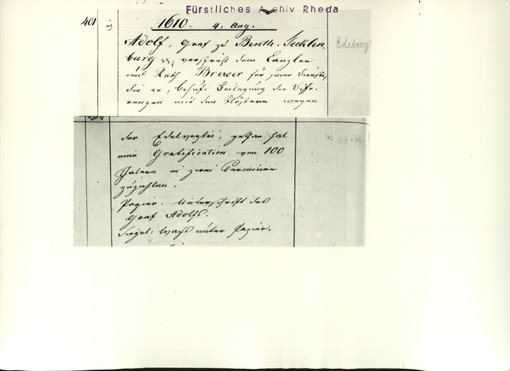 Fürstliches Archiv Rheda
401
1610. 4. Aug.
Adolf, Graf zu Benth. Tecklen-
burg pp, verspricht dem Kanzler
und Rath Brewer für seine Dienste,
die er, behufs Beilegung der Diffe-
renzen mit den Klöstern wegen
Edelvog
der Edelvogtei, gethan hat
eine Gratification von 100
Thalern in zwei Terminen
zuzahlen.
Papier. Unterschrift des
Graf Adolfs.
Siegel: Wachs unter Papier.